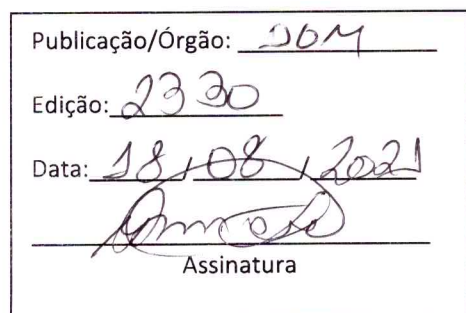 Publicação/Órgão: DOM
Edição: 2330
Data: 18/08/2021
Assinatura